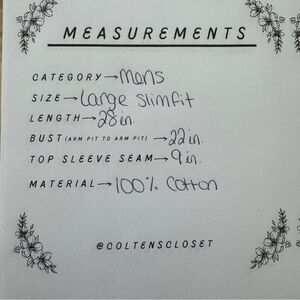 MEASUREMENTS
CATEGORY→Mens
SIZE→Large Slimfit
LENGTH→28in.
BUST (ARM PIT TO ARM PIT)→22in.
TOP SLEEVE SEAM→9in.
MATERIAL→100% Cotton
@COLTENSCLOSET